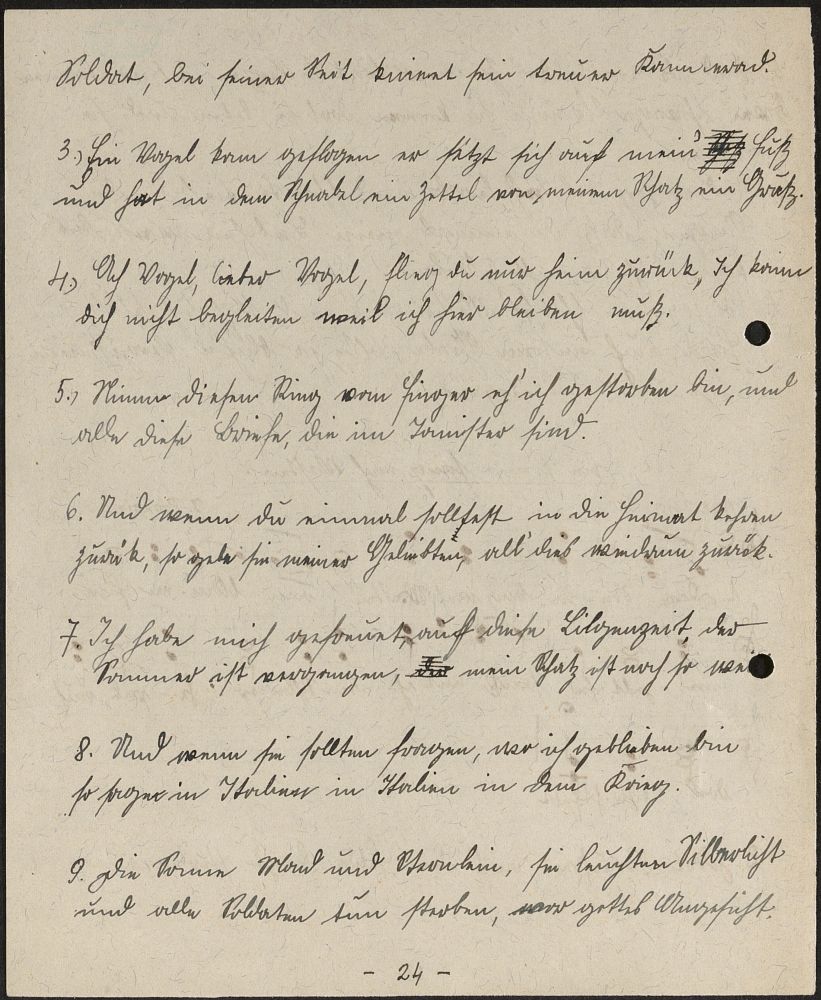 Soldat, bei seiner Seit kniet sein treuer Kammerad.
3.) Ein Vogel kam geflogen er setzt sich auf mein Fuß
und hat in dem Schnabel ein Zettel von meinem Schatz ein Gruß.
4.) Ach Vogel, lieber Vogel, flieg du nur heim zurück, Ich kann
dich nicht begleiten weil ich hier bleiben muß.
5.) Nimm diesen Ring vom Finger eh' ich gestorben bin, und
alle diese Briefe, die im Tornister sind.
6. Und wenn du einmal solltest in die Heimat kehren
zurük, so gebe sie meiner Geliebten, all' dies wiedrum zurük.
7. Ich habe mich gefreuet, auf diese Lilgenzeit, der
Sommer ist vergangen, mein Schatz ist noch so weit
8. Und wenn sie sollten fragen, wo ich geblieben bin
so sage in Italien in Italien in dem Krieg.
9. Die Sonne Mond und Sternlein, sie leuchten Silberlicht
und alle Soldaten tun sterben, vor gottes Angesicht.
- 24 -